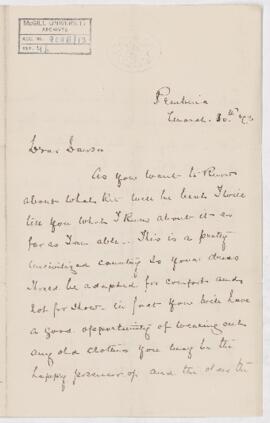 McGILL UNIVERSITY
ARCHIVES
ACC. NO.
REF.
Pembina
March 30th 1873
Dear Dawson
As you want to know
about what kit will be best I will
tell you what I know about it as
far as I am able. This is a pretty
uncivilized country so your dress
should be adapted for comfort and
not for show. in fact you will have
a good opportunity of wearing out
any old clothes you may be the
happy possessor of. and the older the